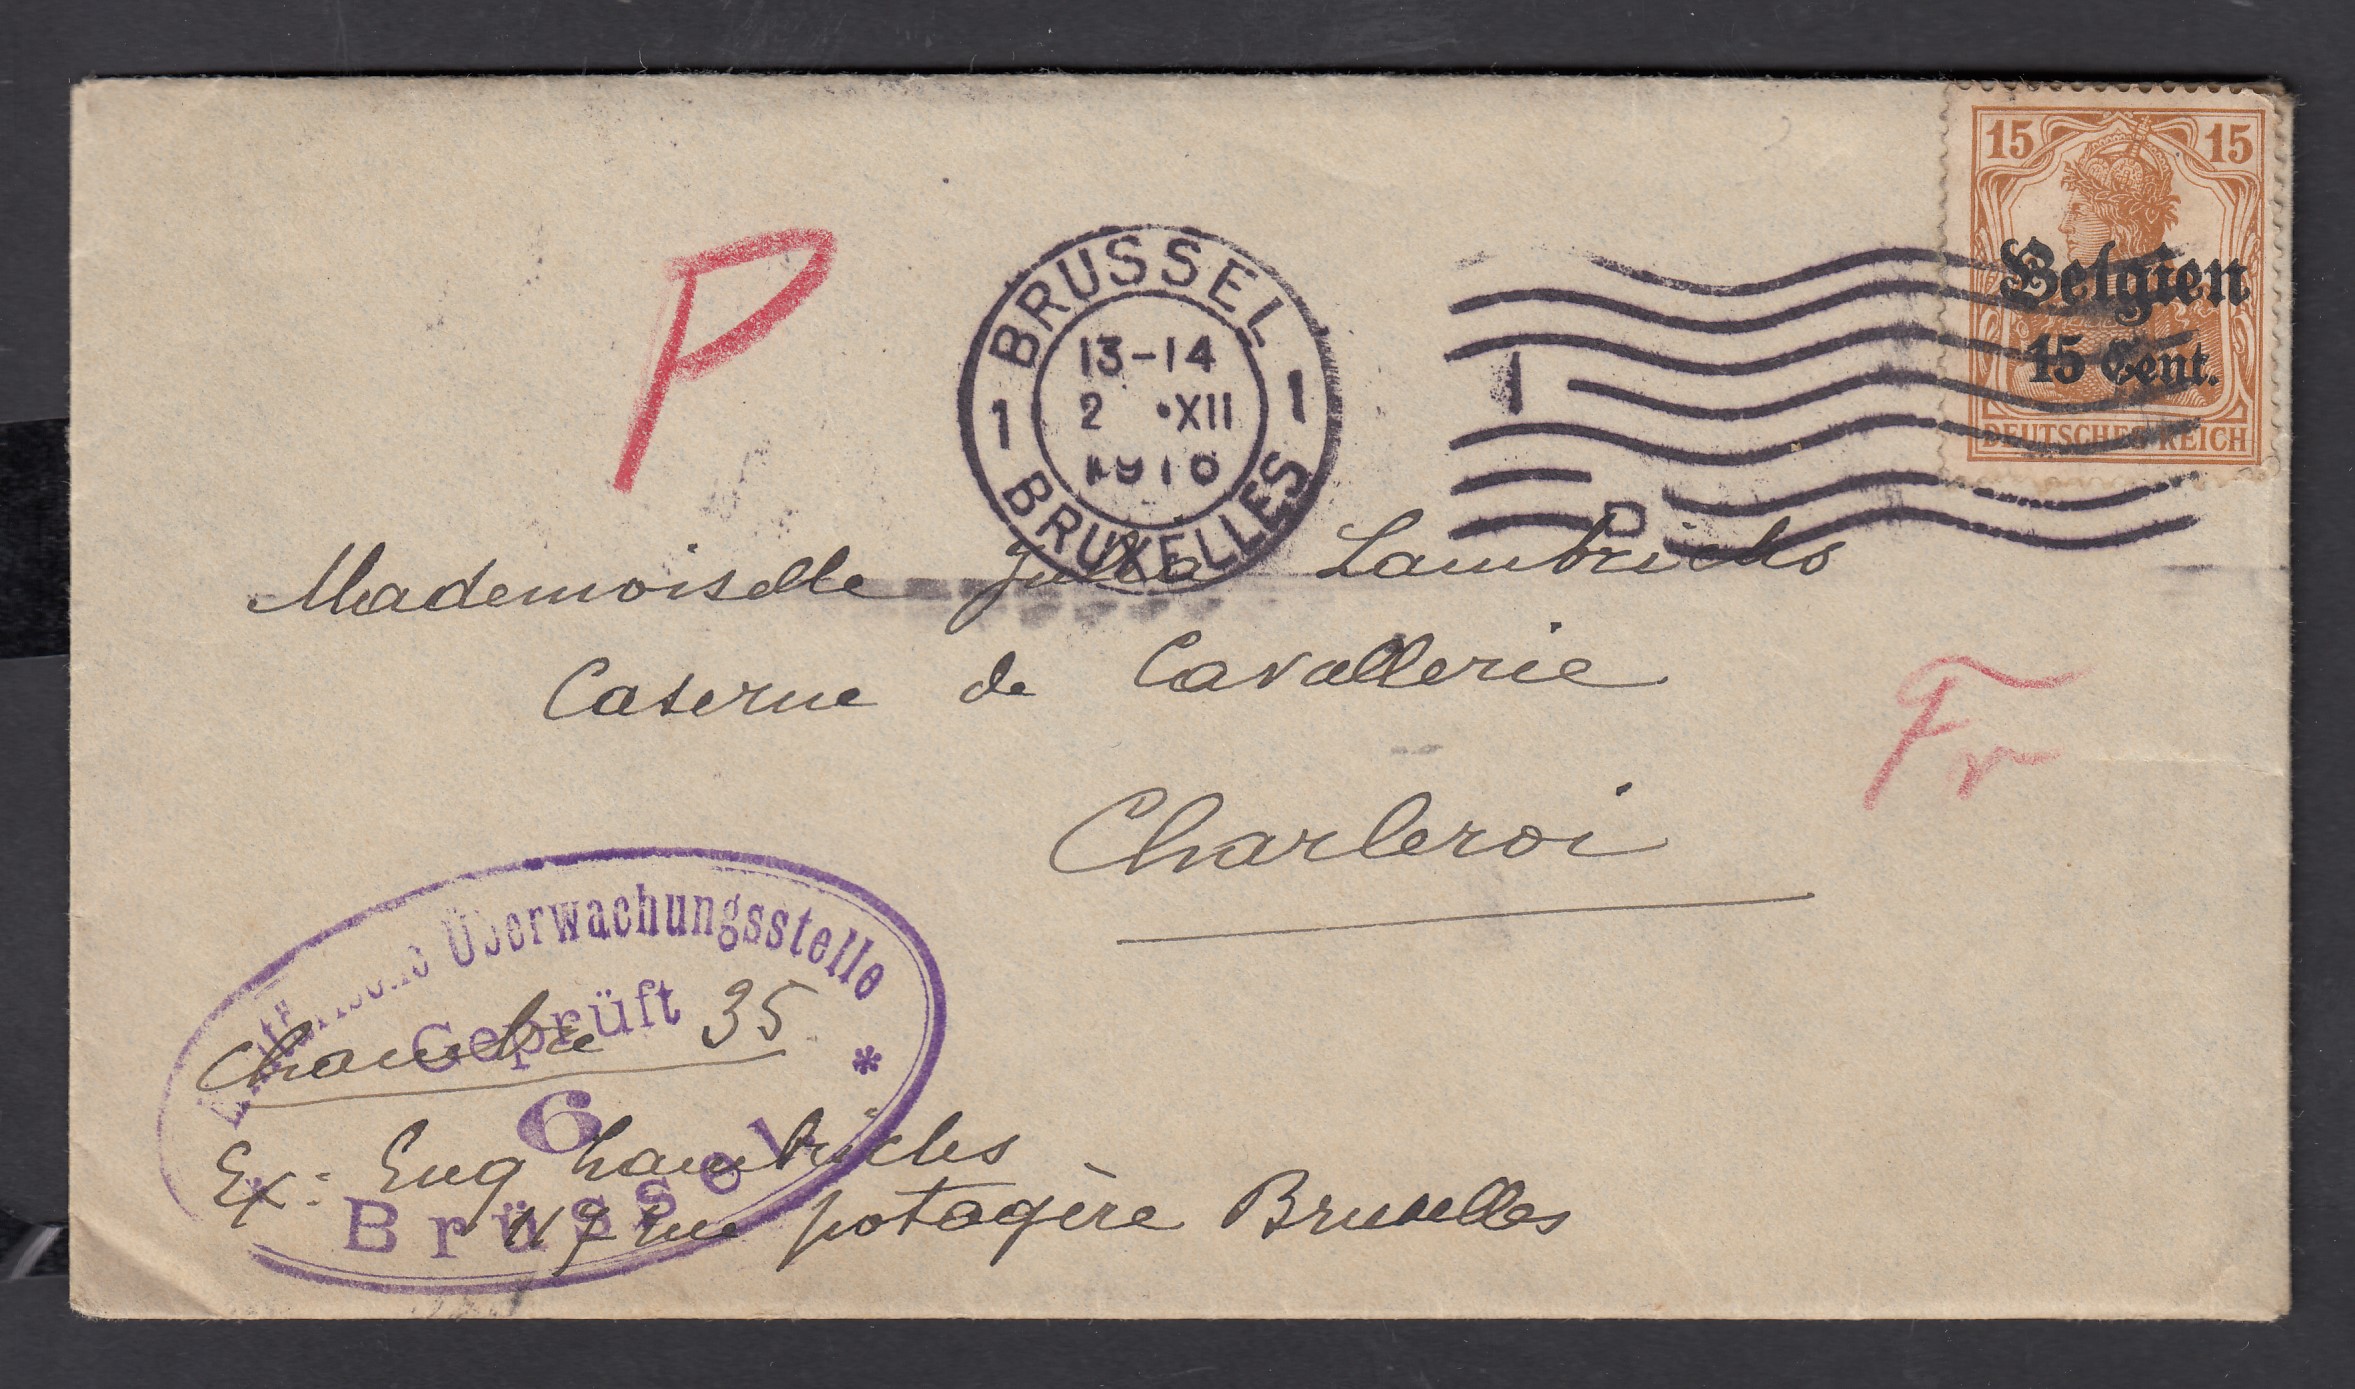 15 15
Belgien
15 Cent.
DEUTSCHES REICH
P
BRUSSEL
13-14
1 2 •XII 1
BRUXELLES
1
P
Mademoiselle Julia Lambrichs
Caserne de Cavallerie
Fr
Charleroi
Überwachungsstelle
Geprüft
6
Brüssel
Chambre 35
Ex: Eug Lambrichs
rue potagère Bruxelles